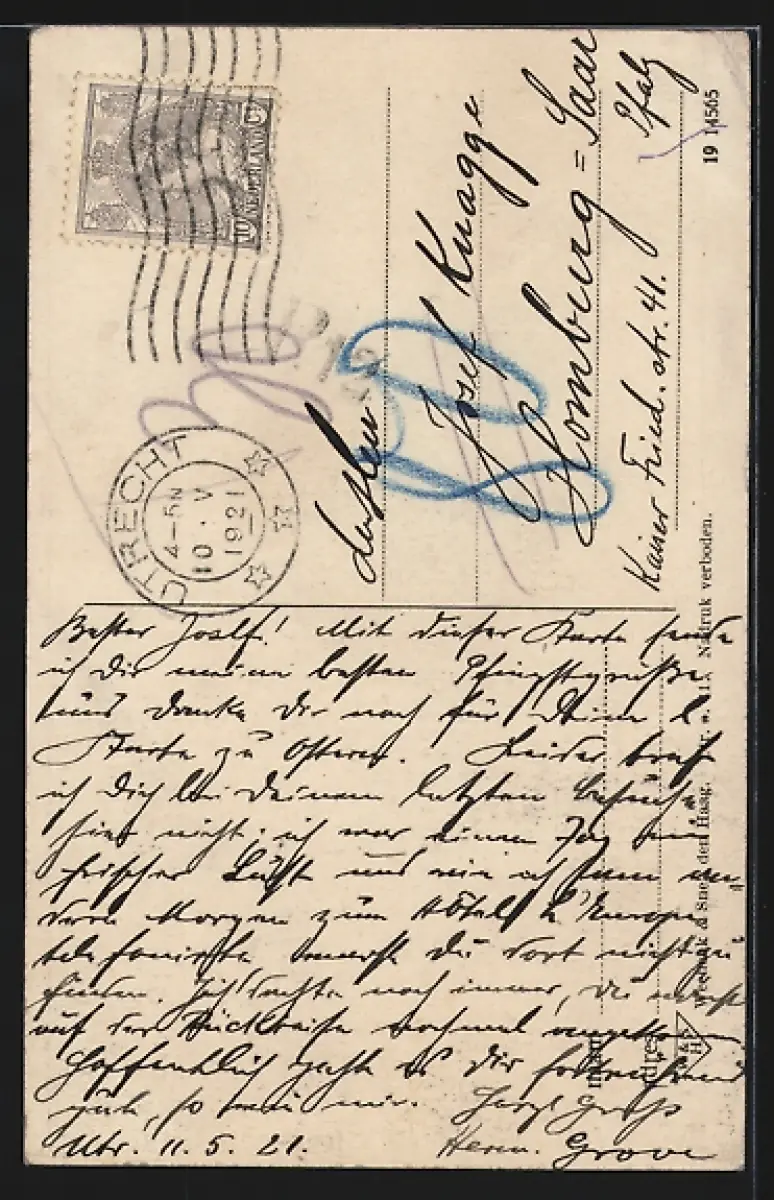 10 NEDERLAND Ct
UTRECHT
4-5N
10.V
1921
Josef Knagge
Homburg = Saar
Pfalz
Kaiser Fried. str. 41.
19 14565
Nadruk verboden.
den Haag.
Bester Josef! Mit dieser Karte sende
ich Dir meine besten Pfingstgrüße
und danke Dir noch für Deine l.
Karte zu Ostern. Leider traf
ich Dich bei Deinem letzten Besuch
hier nicht; ich war einen Tag
frischer Luft und wie ich am an-
dern Morgen zum Hôtel l'Europe
telefonierte warst Du dort nicht zu
finden. Ich dachte noch immer, Du
auf der Rückreise nochmal
Hoffentlich geht es Dir
gut, so wie mir. Herzl. Gruß
Utr. 11.5.21. Herm. Grove